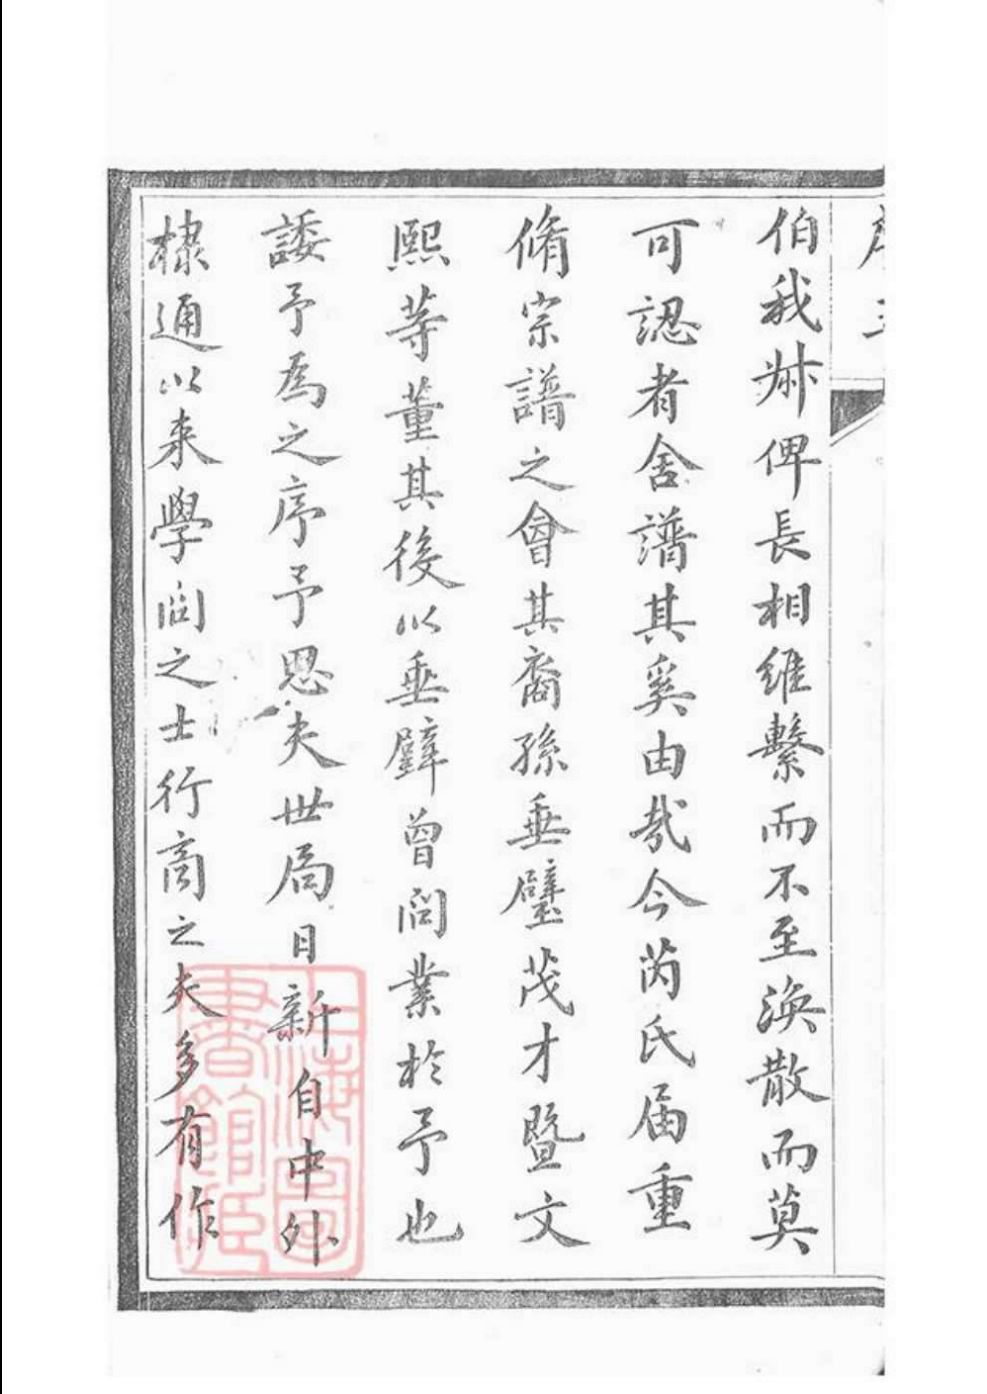 序 三
伯我叔俾長相維繫而不至渙散而莫
可認者舍譜其奚由哉今芮氏届重
脩宗譜之會其裔孫垂璧茂才暨文
熙等董其後以垂璧曾問業於予也
諉予為之序予思夫世局日新自中外
棣通以來學問之士行商之夫多有作
上海圖書館藏